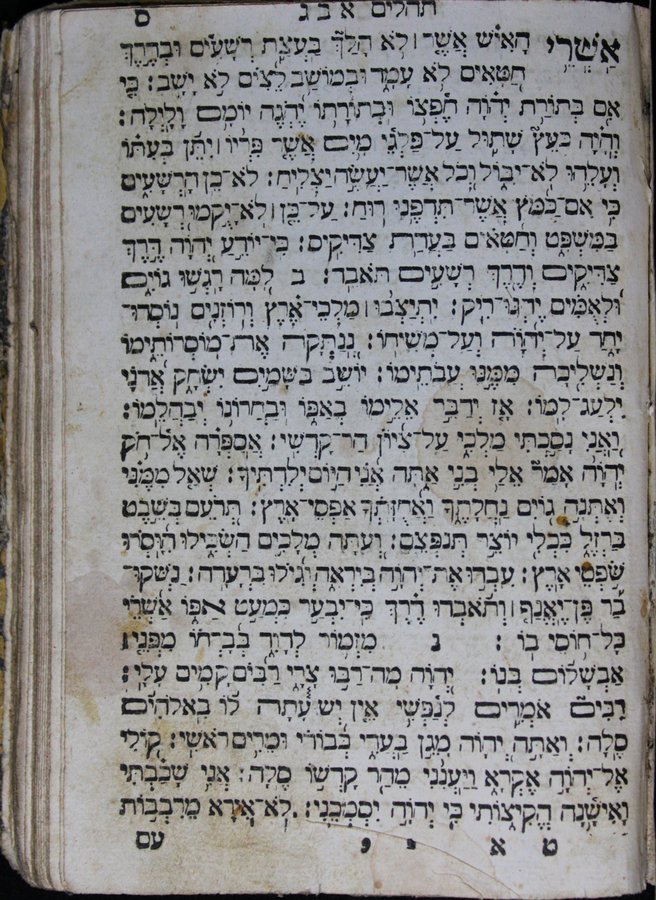 תהלים א ב ג ס
אַשְׁרֵי הָאִישׁ אֲשֶׁר ׀ לֹא הָלַךְ בַּעֲצַת רְשָׁעִים וּבְדֶרֶךְ
חַטָּאִים לֹא עָמָד וּבְמוֹשַׁב לֵצִים לֹא יָשָׁב׃ כִּי
אִם בְּתוֹרַת יְהוָה חֶפְצוֹ וּבְתוֹרָתוֹ יֶהְגֶּה יוֹמָם וָלָיְלָה׃
וְהָיָה כְּעֵץ שָׁתוּל עַל־פַּלְגֵי מָיִם אֲשֶׁר פִּרְיוֹ ׀ יִתֵּן בְּעִתּוֹ
וְעָלֵהוּ לֹא־יִבּוֹל וְכֹל אֲשֶׁר־יַעֲשֶׂה יַצְלִיחַ׃ לֹא־כֵן הָרְשָׁעִים
כִּי אִם־כַּמֹּץ אֲשֶׁר־תִּדְּפֶנּוּ רוּחַ׃ עַל־כֵּן ׀ לֹא־יָקֻמוּ רְשָׁעִים
בַּמִּשְׁפָּט וְחַטָּאִים בַּעֲדַת צַדִּיקִים׃ כִּי־יוֹדֵעַ יְהוָה דֶּרֶךְ
צַדִּיקִים וְדֶרֶךְ רְשָׁעִים תֹּאבֵד׃ ב לָמָּה רָגְשׁוּ גוֹיִם
וּלְאֻמִּים יֶהְגּוּ־רִיק׃ יִתְיַצְּבוּ ׀ מַלְכֵי־אֶרֶץ וְרוֹזְנִים נוֹסְדוּ־
יָחַד עַל־יְהוָה וְעַל־מְשִׁיחוֹ׃ נְנַתְּקָה אֶת־מוֹסְרוֹתֵימוֹ
וְנַשְׁלִיכָה מִמֶּנּוּ עֲבֹתֵימוֹ׃ יוֹשֵׁב בַּשָּׁמַיִם יִשְׂחָק אֲדֹנָי
יִלְעַג־לָמוֹ׃ אָז יְדַבֵּר אֵלֵימוֹ בְאַפּוֹ וּבַחֲרוֹנוֹ יְבַהֲלֵמוֹ׃
וַאֲנִי נָסַכְתִּי מַלְכִּי עַל־צִיּוֹן הַר־קָדְשִׁי׃ אֲסַפְּרָה אֶל־חֹק
יְהוָה אָמַר אֵלַי בְּנִי אַתָּה אֲנִי הַיּוֹם יְלִדְתִּיךָ׃ שְׁאַל מִמֶּנִּי
וְאֶתְּנָה גוֹיִם נַחֲלָתֶךָ וַאֲחֻזָּתְךָ אַפְסֵי־אָרֶץ׃ תְּרֹעֵם בְּשֵׁבֶט
בַּרְזֶל כִּכְלִי יוֹצֵר תְּנַפְּצֵם׃ וְעַתָּה מְלָכִים הַשְׂכִּילוּ הִוָּסְרוּ
שֹׁפְטֵי אָרֶץ׃ עִבְדוּ אֶת־יְהוָה בְּיִרְאָה וְגִילוּ בִּרְעָדָה׃ נַשְּׁקוּ־
בַר פֶּן־יֶאֱנַף ׀ וְתֹאבְדוּ דֶרֶךְ כִּי־יִבְעַר כִּמְעַט אַפּוֹ אַשְׁרֵי
כָּל־חוֹסֵי בוֹ׃ ג מִזְמוֹר לְדָוִד בְּבָרְחוֹ מִפְּנֵי ׀
אַבְשָׁלוֹם בְּנוֹ׃ יְהוָה מָה־רַבּוּ צָרָי רַבִּים קָמִים עָלָי׃
רַבִּים אֹמְרִים לְנַפְשִׁי אֵין יְשֻׁעָתָה לּוֹ בֵאלֹהִים
סֶלָה׃ וְאַתָּה יְהוָה מָגֵן בַּעֲדִי כְּבוֹדִי וּמֵרִים רֹאשִׁי׃ קוֹלִי
אֶל־יְהוָה אֶקְרָא וַיַּעֲנֵנִי מֵהַר קָדְשׁוֹ סֶלָה׃ אֲנִי שָׁכַבְתִּי
וָאִישָׁנָה הֱקִיצוֹתִי כִּי יְהוָה יִסְמְכֵנִי׃ לֹא־אִירָא מֵרִבְבוֹת
ט א י י עם